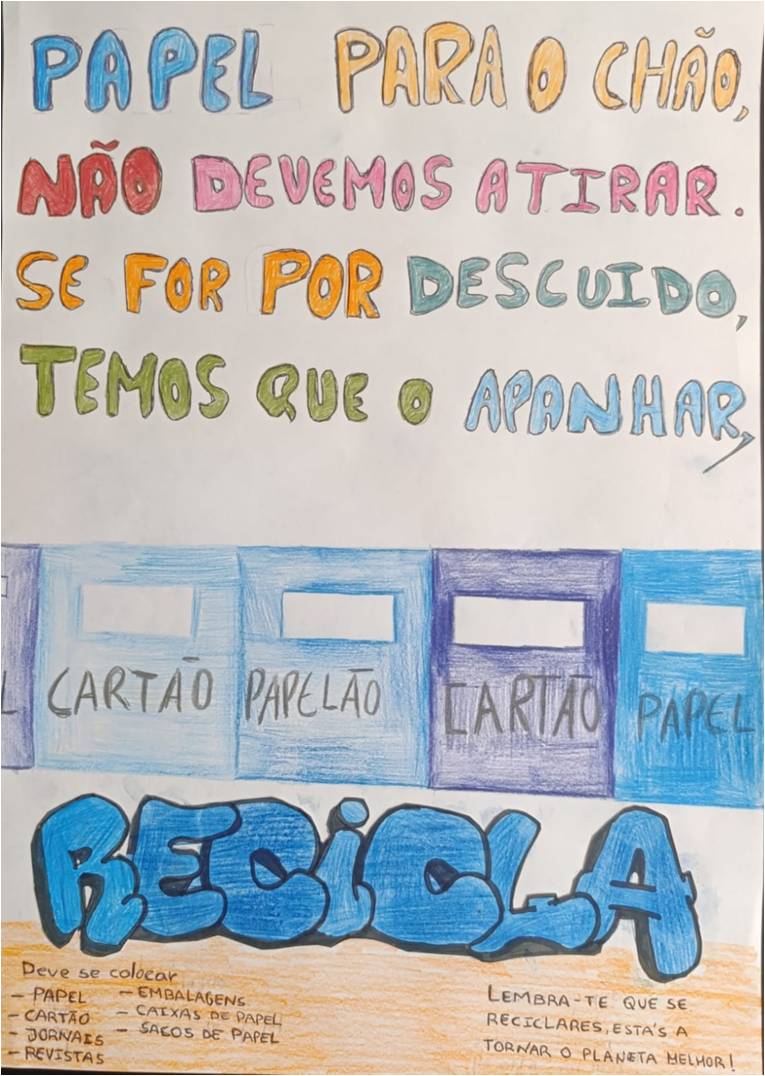 PAPEL PARA O CHÃO,
NÃO DEVEMOS ATIRAR.
SE FOR POR DESCUIDO,
TEMOS QUE O APANHAR,
L CARTÃO PAPELÃO CARTÃO PAPEL
RECiCLA
Deve se colocar
- PAPEL
- CARTÃO
- JORNAIS
- REVISTAS
- EMBALAGENS
- CAIXAS DE PAPEL
- SACOS DE PAPEL
LEMBRA-TE QUE SE
RECICLARES, ESTÁ'S A
TORNAR O PLANETA MELHOR!